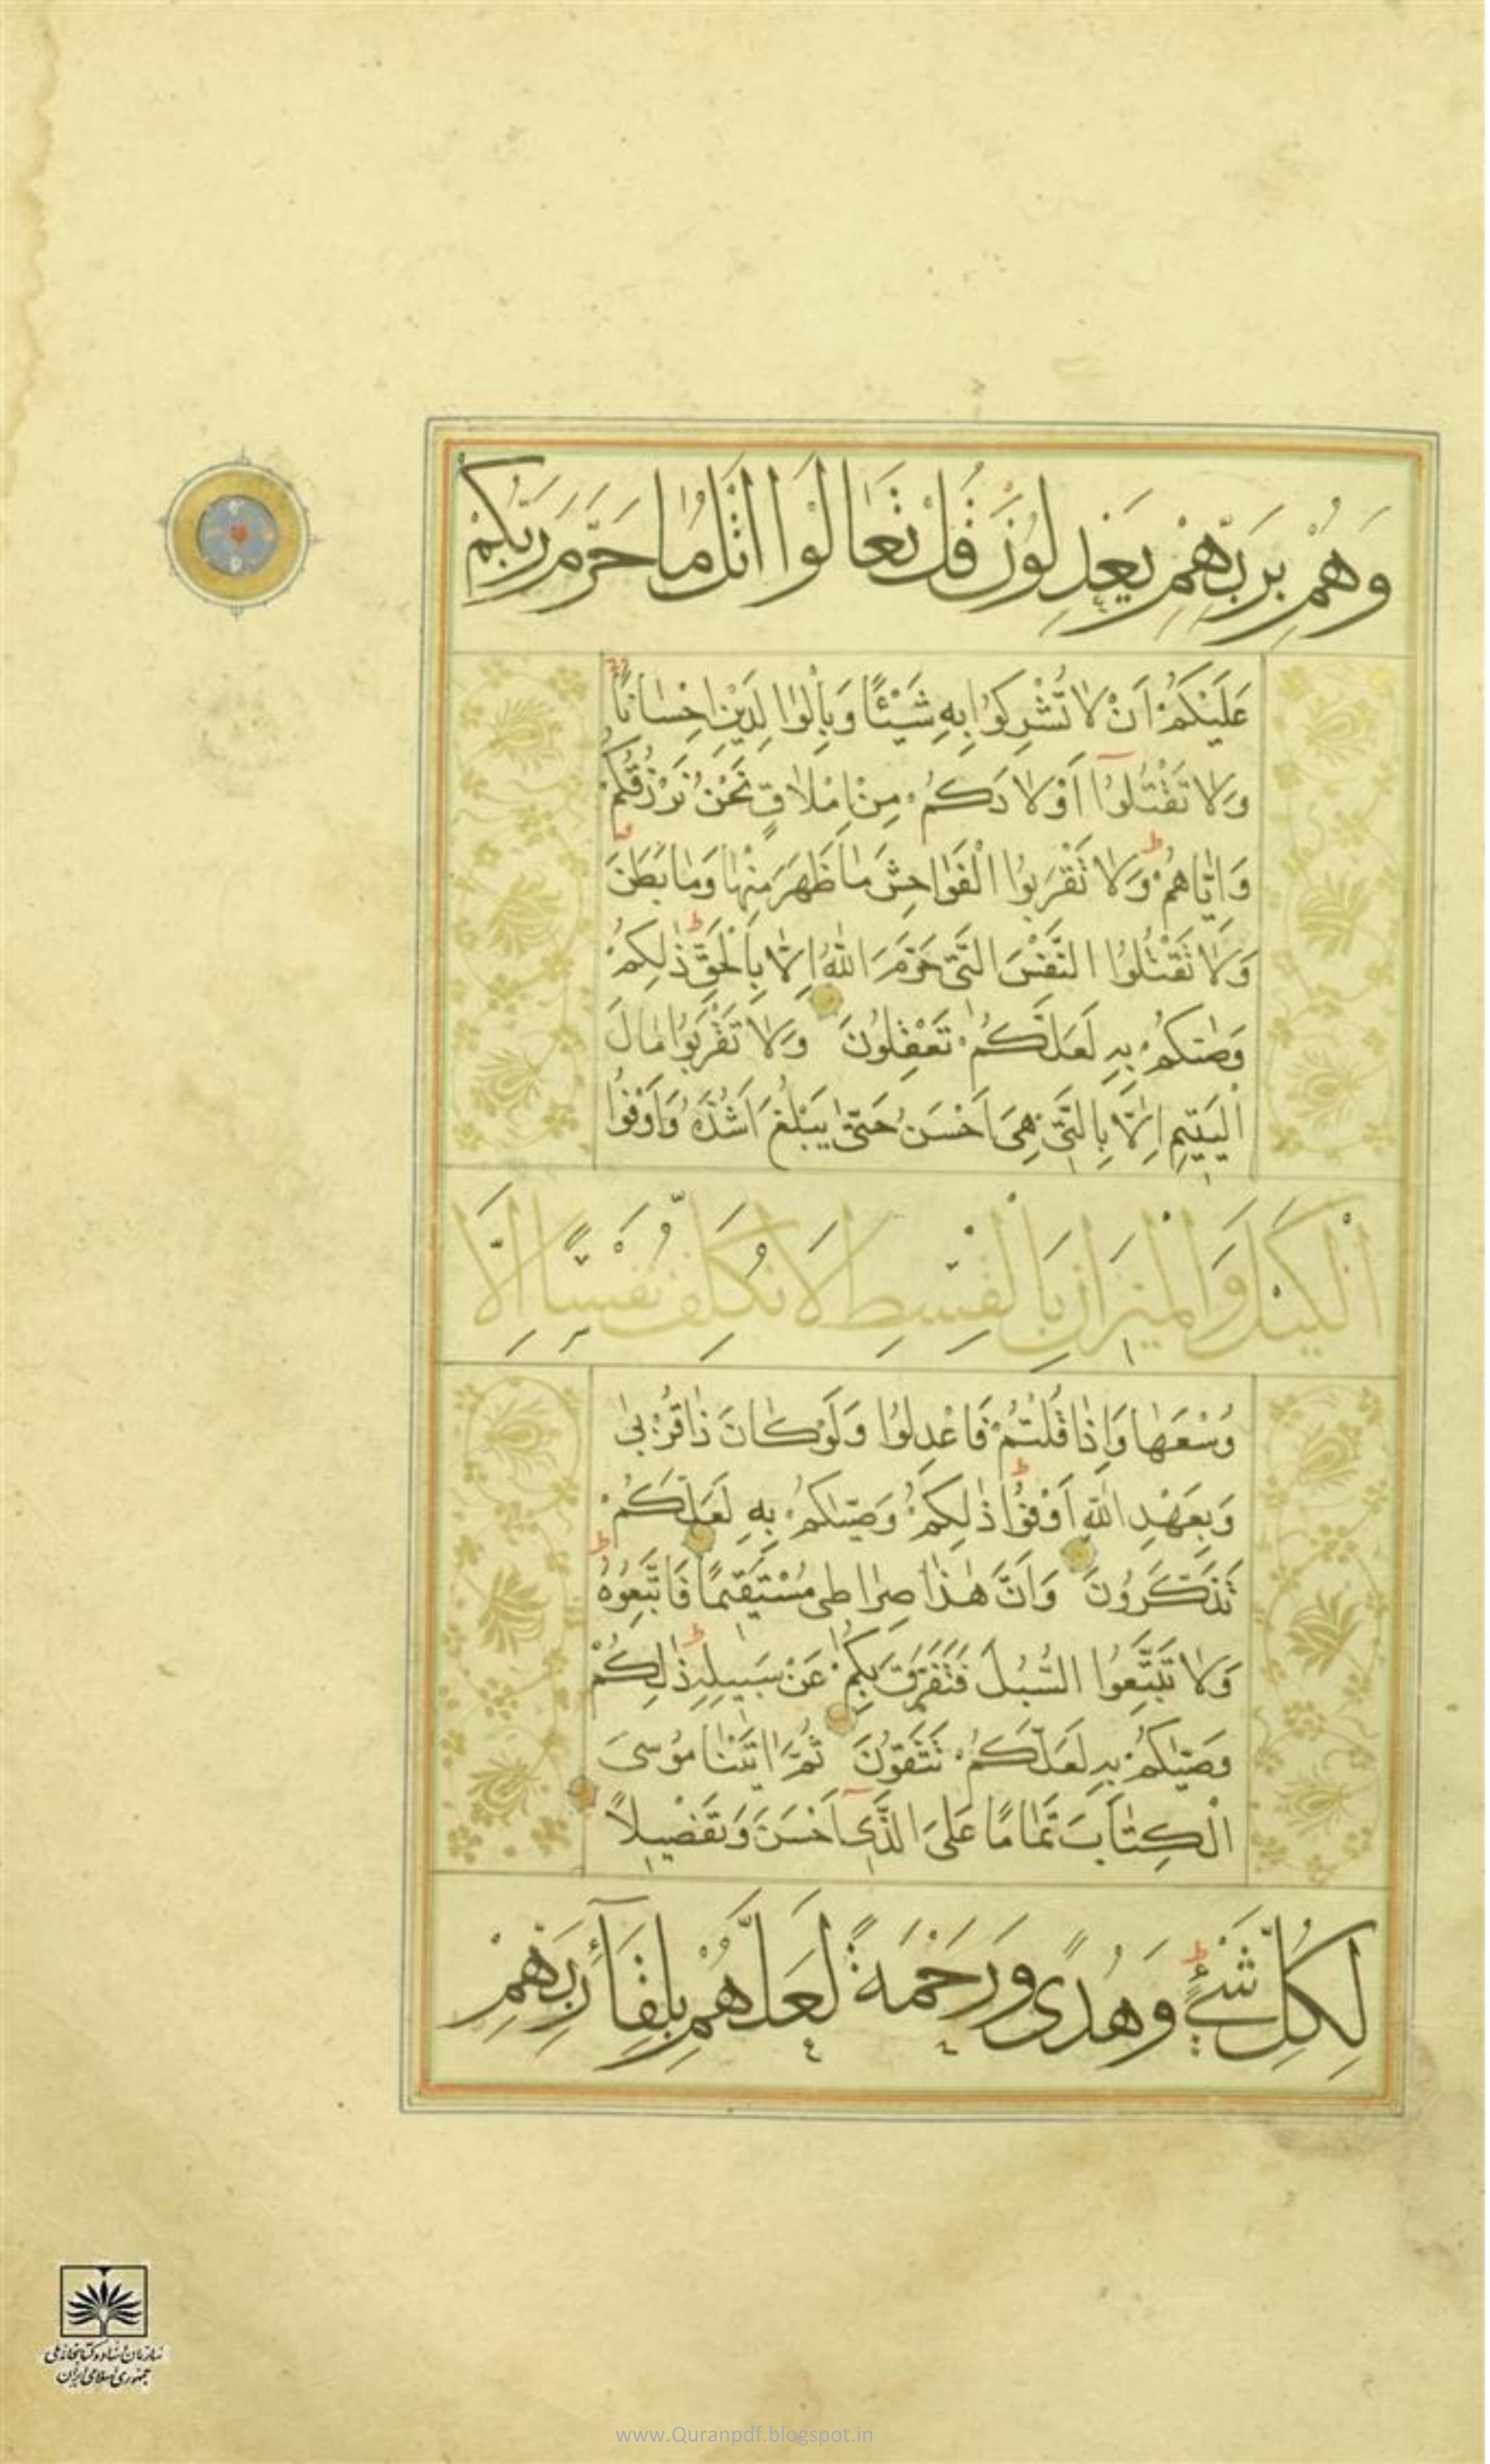 وَهُمْ بِرَبِّهِمْ يَعْدِلُونَ قُلْ تَعَالَوْا اَتْلُ مَا حَرَّمَ رَبُّكُمْ
عَلَيْكُمْ اَنْ لَا تُشْرِكُوا بِهِ شَيْئًا وَبِالْوَالِدَيْنِ اِحْسَانًا
وَلَا تَقْتُلُوٓا اَوْلَادَكُمْ مِنْ اِمْلَاقٍ نَحْنُ نَرْزُقُكُمْ
وَاِيَّاهُمْ وَلَا تَقْرَبُوا الْفَوَاحِشَ مَا ظَهَرَ مِنْهَا وَمَا بَطَنَ
وَلَا تَقْتُلُوا النَّفْسَ الَّتِي حَرَّمَ اللّٰهُ اِلَّا بِالْحَقِّ ذٰلِكُمْ
وَصّٰىكُمْ بِهِ لَعَلَّكُمْ تَعْقِلُونَ وَلَا تَقْرَبُوا مَالَ
الْيَتِيمِ اِلَّا بِالَّتِي هِيَ اَحْسَنُ حَتّٰى يَبْلُغَ اَشُدَّهُ وَاَوْفُوا
الْكَيْلَ وَالْمِيزَانَ بِالْقِسْطِ لَا نُكَلِّفُ نَفْسًا اِلَّا
وُسْعَهَا وَاِذَا قُلْتُمْ فَاعْدِلُوا وَلَوْ كَانَ ذَا قُرْبٰى
وَبِعَهْدِ اللّٰهِ اَوْفُوا ذٰلِكُمْ وَصّٰيكُمْ بِهِ لَعَلَّكُمْ
تَذَكَّرُونَ وَاَنَّ هٰذَا صِرَاطِي مُسْتَقِيمًا فَاتَّبِعُوهُ
وَلَا تَتَّبِعُوا السُّبُلَ فَتَفَرَّقَ بِكُمْ عَنْ سَبِيلِهِ ذٰلِكُمْ
وَصّٰيكُمْ بِهِ لَعَلَّكُمْ تَتَّقُونَ ثُمَّ اٰتَيْنَا مُوسَى
الْكِتَابَ تَمَامًا عَلَى الَّذِيٓ اَحْسَنَ وَتَفْصِيلًا
لِكُلِّ شَيْءٍ وَهُدًى وَرَحْمَةً لَعَلَّهُمْ بِلِقَآءِ رَبِّهِمْ
سازمان اسناد و کتابخانه ملی
جمهوری اسلامی ایران
www.Quranpdf.blogspot.in